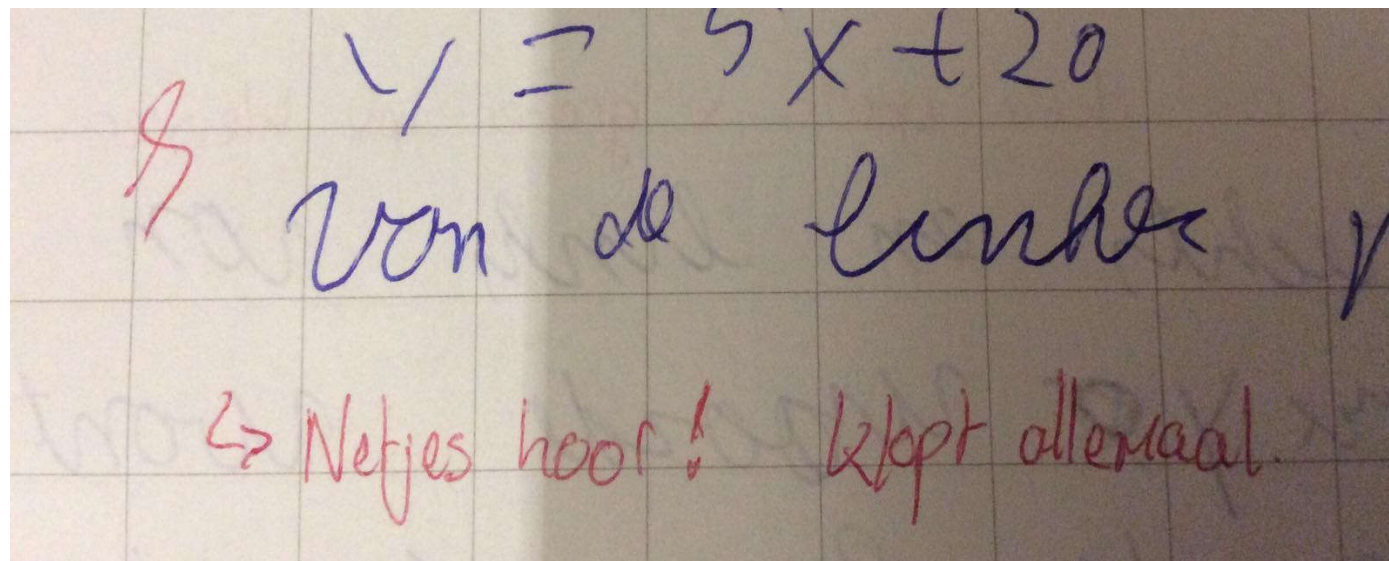 y = 5x + 20
van de linker
↳ Netjes hoor! klopt allemaal.